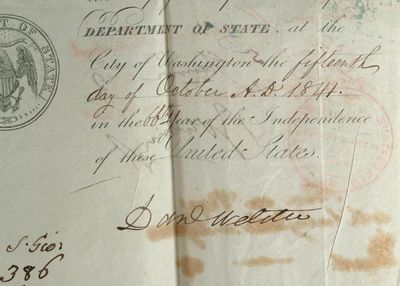 DEPARTMENT OF STATE, at the
City of Washington the fifteenth
day of October A.D. 1841.
in the 66th Year of the Independence
of these United States.
Danl Webster
386
T OF STATE